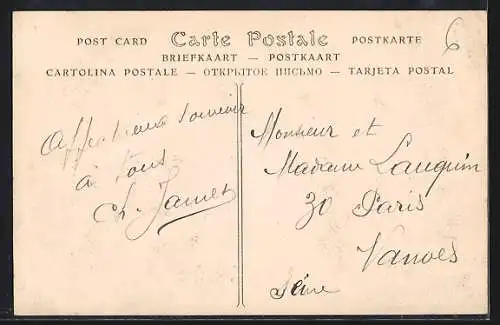 POST CARD Carte Postale POSTKARTE
BRIEFKAART — POSTKAART
CARTOLINA POSTALE — ОТКРЫТОЕ ПИСЬМО — TARJETA POSTAL
6
Affectueux souvenir
à tous
Ch. Jamet
Monsieur et
Madame Lauquin
30 Paris
Vanves
Seine